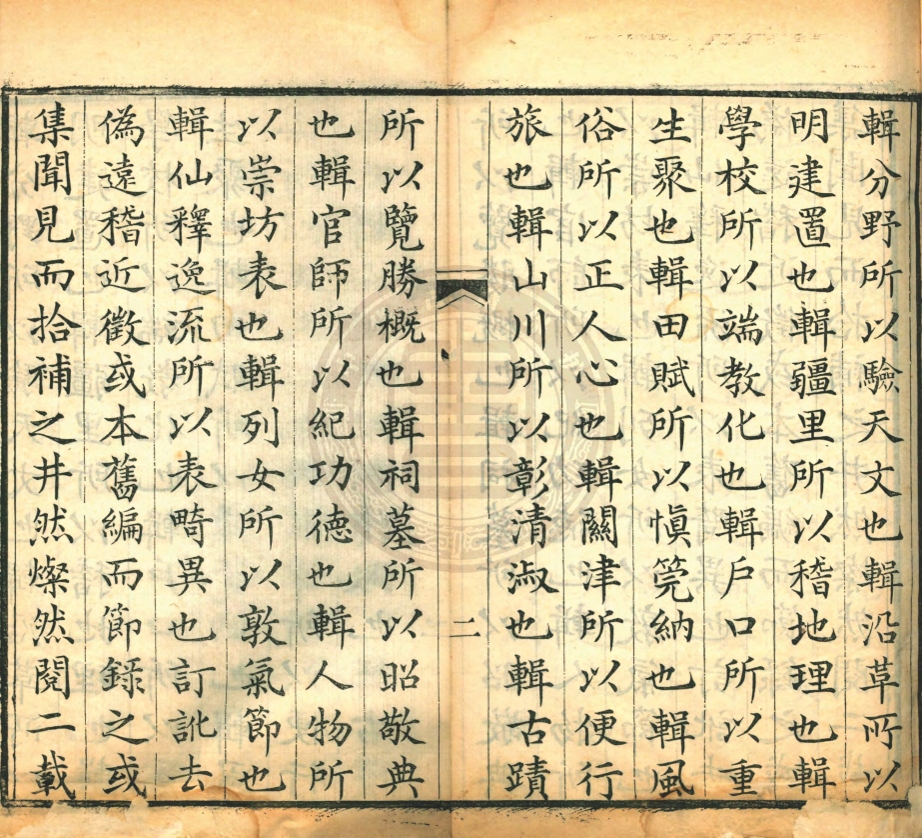 輯分野所以驗天文也輯沿革所以
明建置也輯疆里所以稽地理也輯
學校所以端教化也輯戶口所以重
生聚也輯田賦所以慎筦納也輯風
俗所以正人心也輯關津所以便行
旅也輯山川所以彰清淑也輯古蹟
二
所以覽勝概也輯祠墓所以昭敬典
也輯官師所以紀功德也輯人物所
以崇坊表也輯列女所以敦氣節也
輯仙釋逸流所以表畸異也訂訛去
偽遠稽近徵或本舊編而節錄之或
集聞見而拾補之井然燦然閱二載